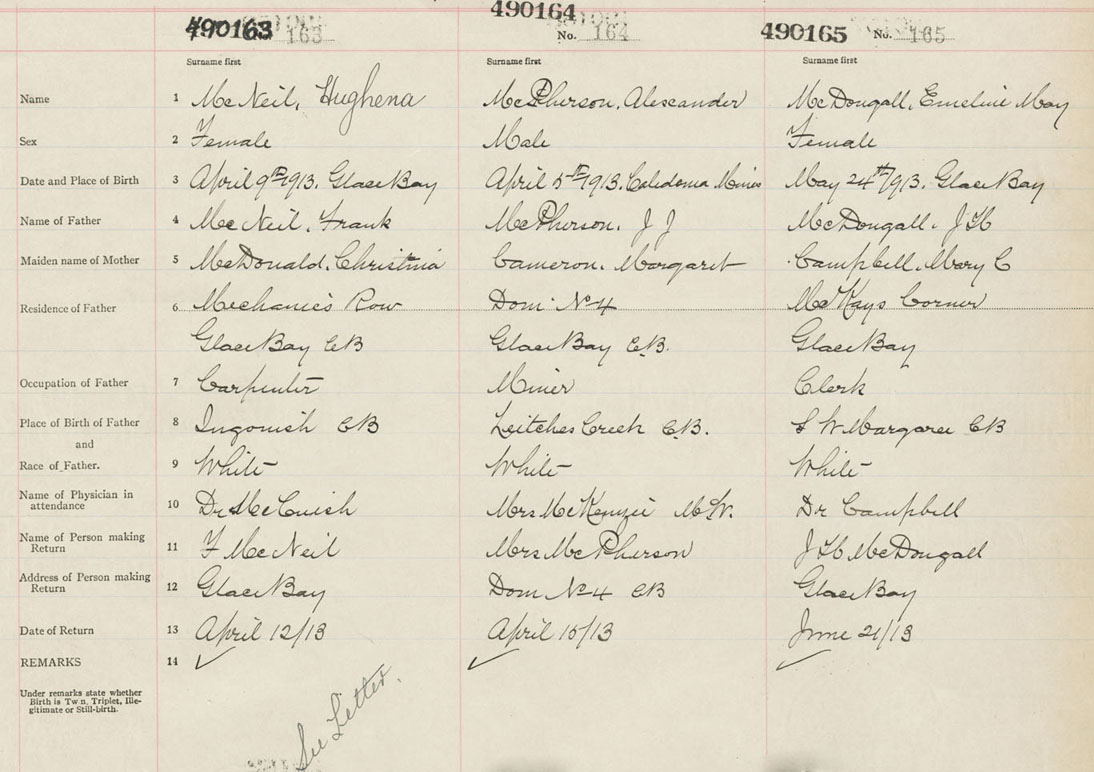 490163 163
490164
No. 164
490165 No. 165
Surname first Surname first Surname first
Name 1 McNeil, Hughena McPherson, Alexander McDougall, Emeline May
Sex 2 Female Male Female
Date and Place of Birth 3 April 9th 1913. Glace Bay April 5th 1913. Caledonia Mines May 24th/913. Glace Bay
Name of Father 4 McNeil, Frank McPherson, J J McDougall, J H
Maiden name of Mother 5 McDonald, Christina Cameron, Margaret Campbell, Mary C
Residence of Father 6 Mechanics Row Dom. No 4 McKays Corner
Glace Bay CB Glace Bay C.B. Glace Bay
Occupation of Father 7 Carpenter Miner Clerk
Place of Birth of Father 8 Ingonish CB Leitches Creek C.B. S W Margaree CB
and
Race of Father. 9 White White White
Name of Physician in
attendance 10 Dr McCuish Mrs McKenzie M.W. Dr Campbell
Name of Person making
Return 11 F McNeil Mrs McPherson J H McDougall
Address of Person making
Return 12 Glace Bay Dom No 4 CB Glace Bay
Date of Return 13 April 12/13 April 15/13 June 21/13
REMARKS 14
Under remarks state whether
Birth is Twn, Triplet, Ille-
gitimate or Still-birth.
See Letter.